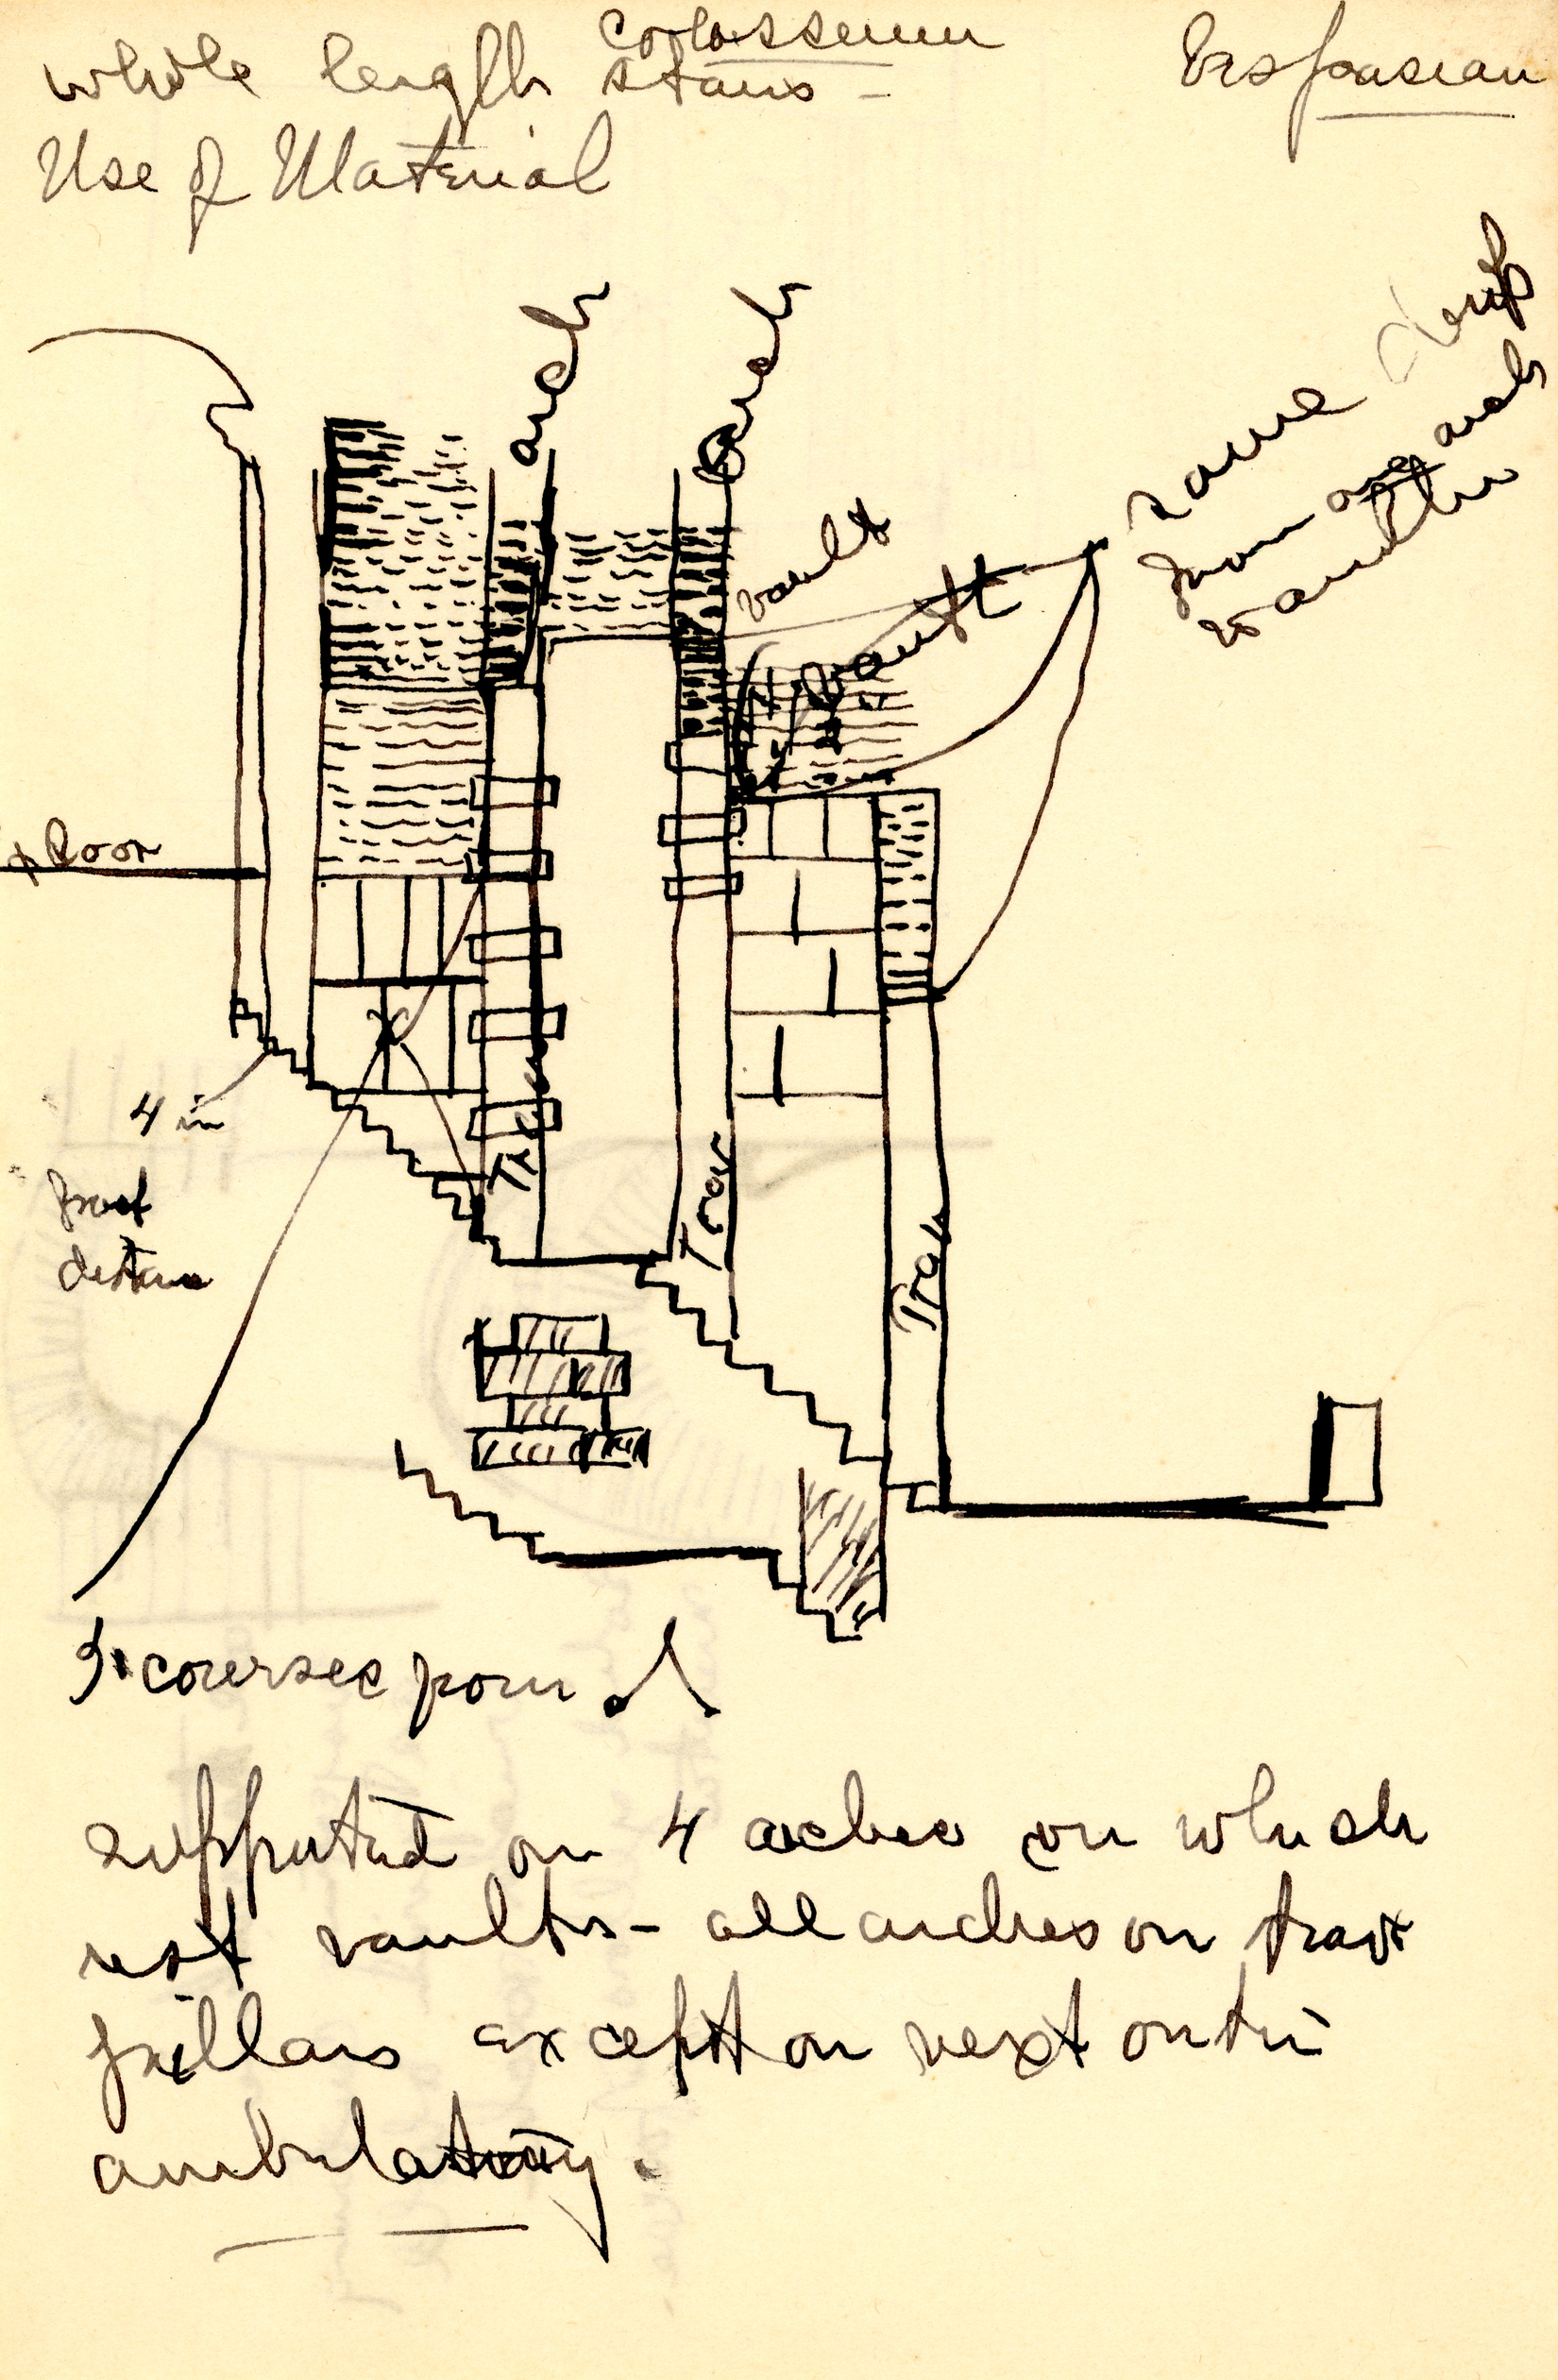 Colosseum
whole length stairs - Vespasian
Use of Material
arch
arch
vault
vault
same
from arch
vault
floor
4 in
front
distance
Trav
Trav
Trav
courses from
supported on 4 arches on which
rest vaults - all arches on trav
pillars except on next outer
ambulatory.